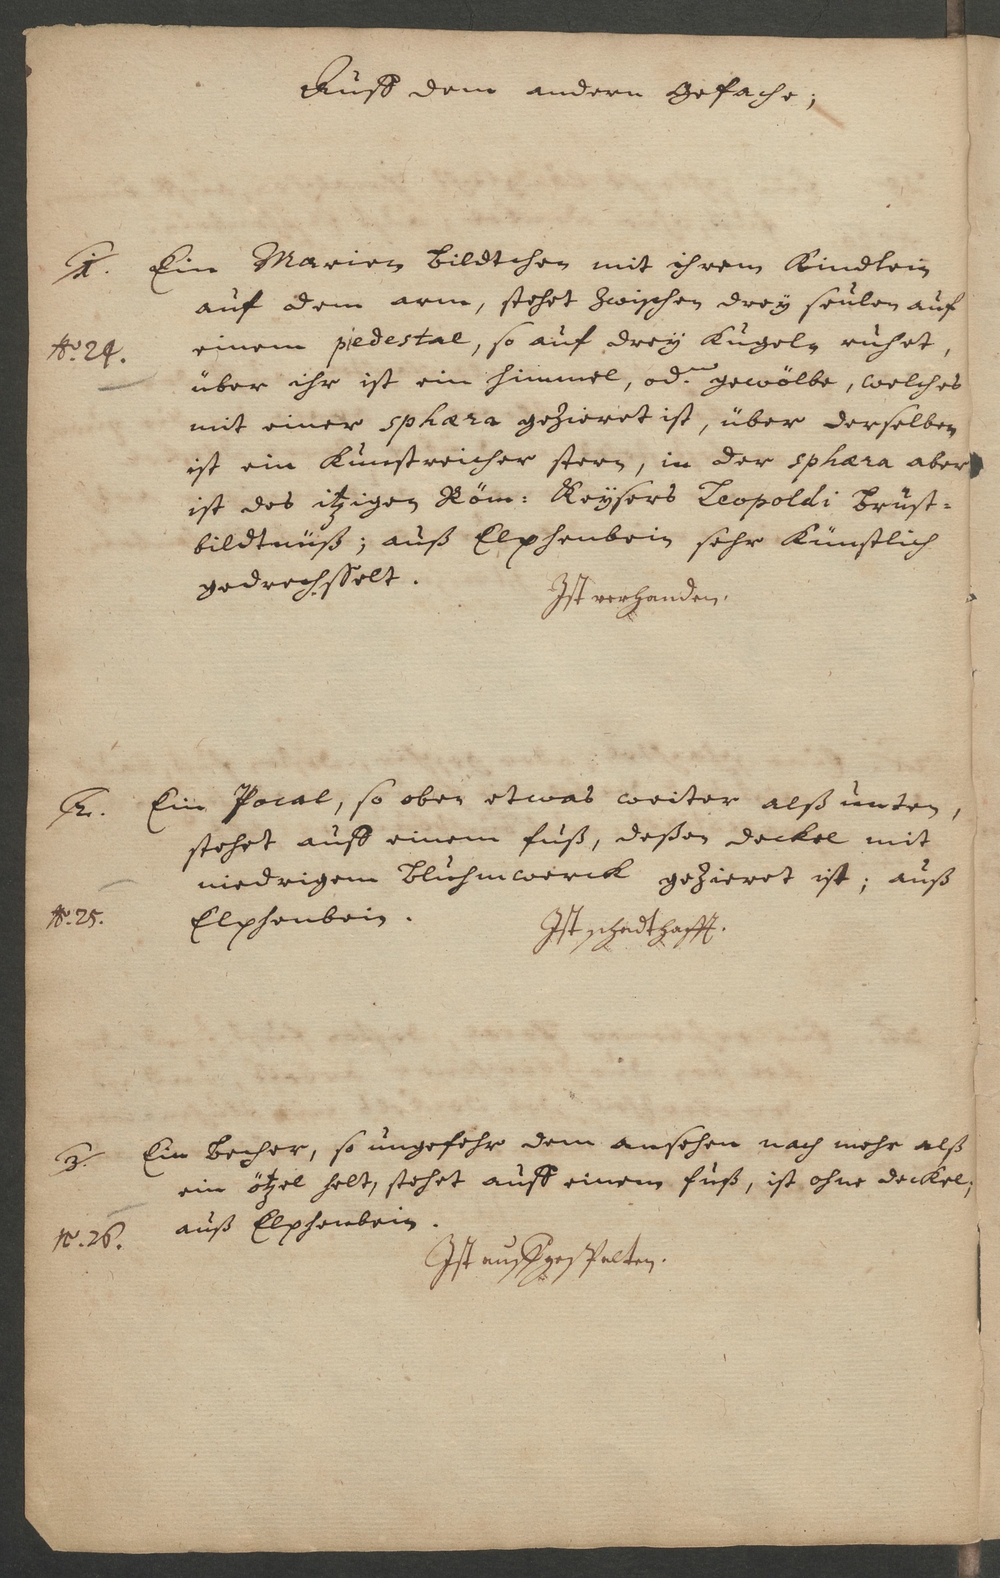 Auff dem andern Gefache;
1. Ein Marien bildtchen mit ihrem Kindlein
auf dem arm, stehet zwischen dreÿ seulen auf
No. 24. einem piedestal, so auf dreÿ Kugeln ruhet,
über ihr ist ein himmel, od. gewölbe, welches
mit einer sphæra gezieret ist, über derselben
ist ein Kunstreicher stern, in der sphæra aber
ist des itzigen Röm: Keÿsers Leopoldi brust-
bildtnüß; auß Elphenbein sehr Künstlich
gedrechsselt.
Ist verhanden.
2. Ein Pocal, so oben etwas weiter alß unten,
stehet auff einem fuß, deßen deckel mit
niedrigem bluhmwerck gezieret ist; auß
No. 25. Elphenbein.
Ist schadthafft.
3. Ein becher, so ungefehr dem ansehen nach mehr alß
ein ötzel helt, stehet auff einem fuß, ist ohne deckel;
No. 26. auß Elphenbein.
Ist außgespalten.